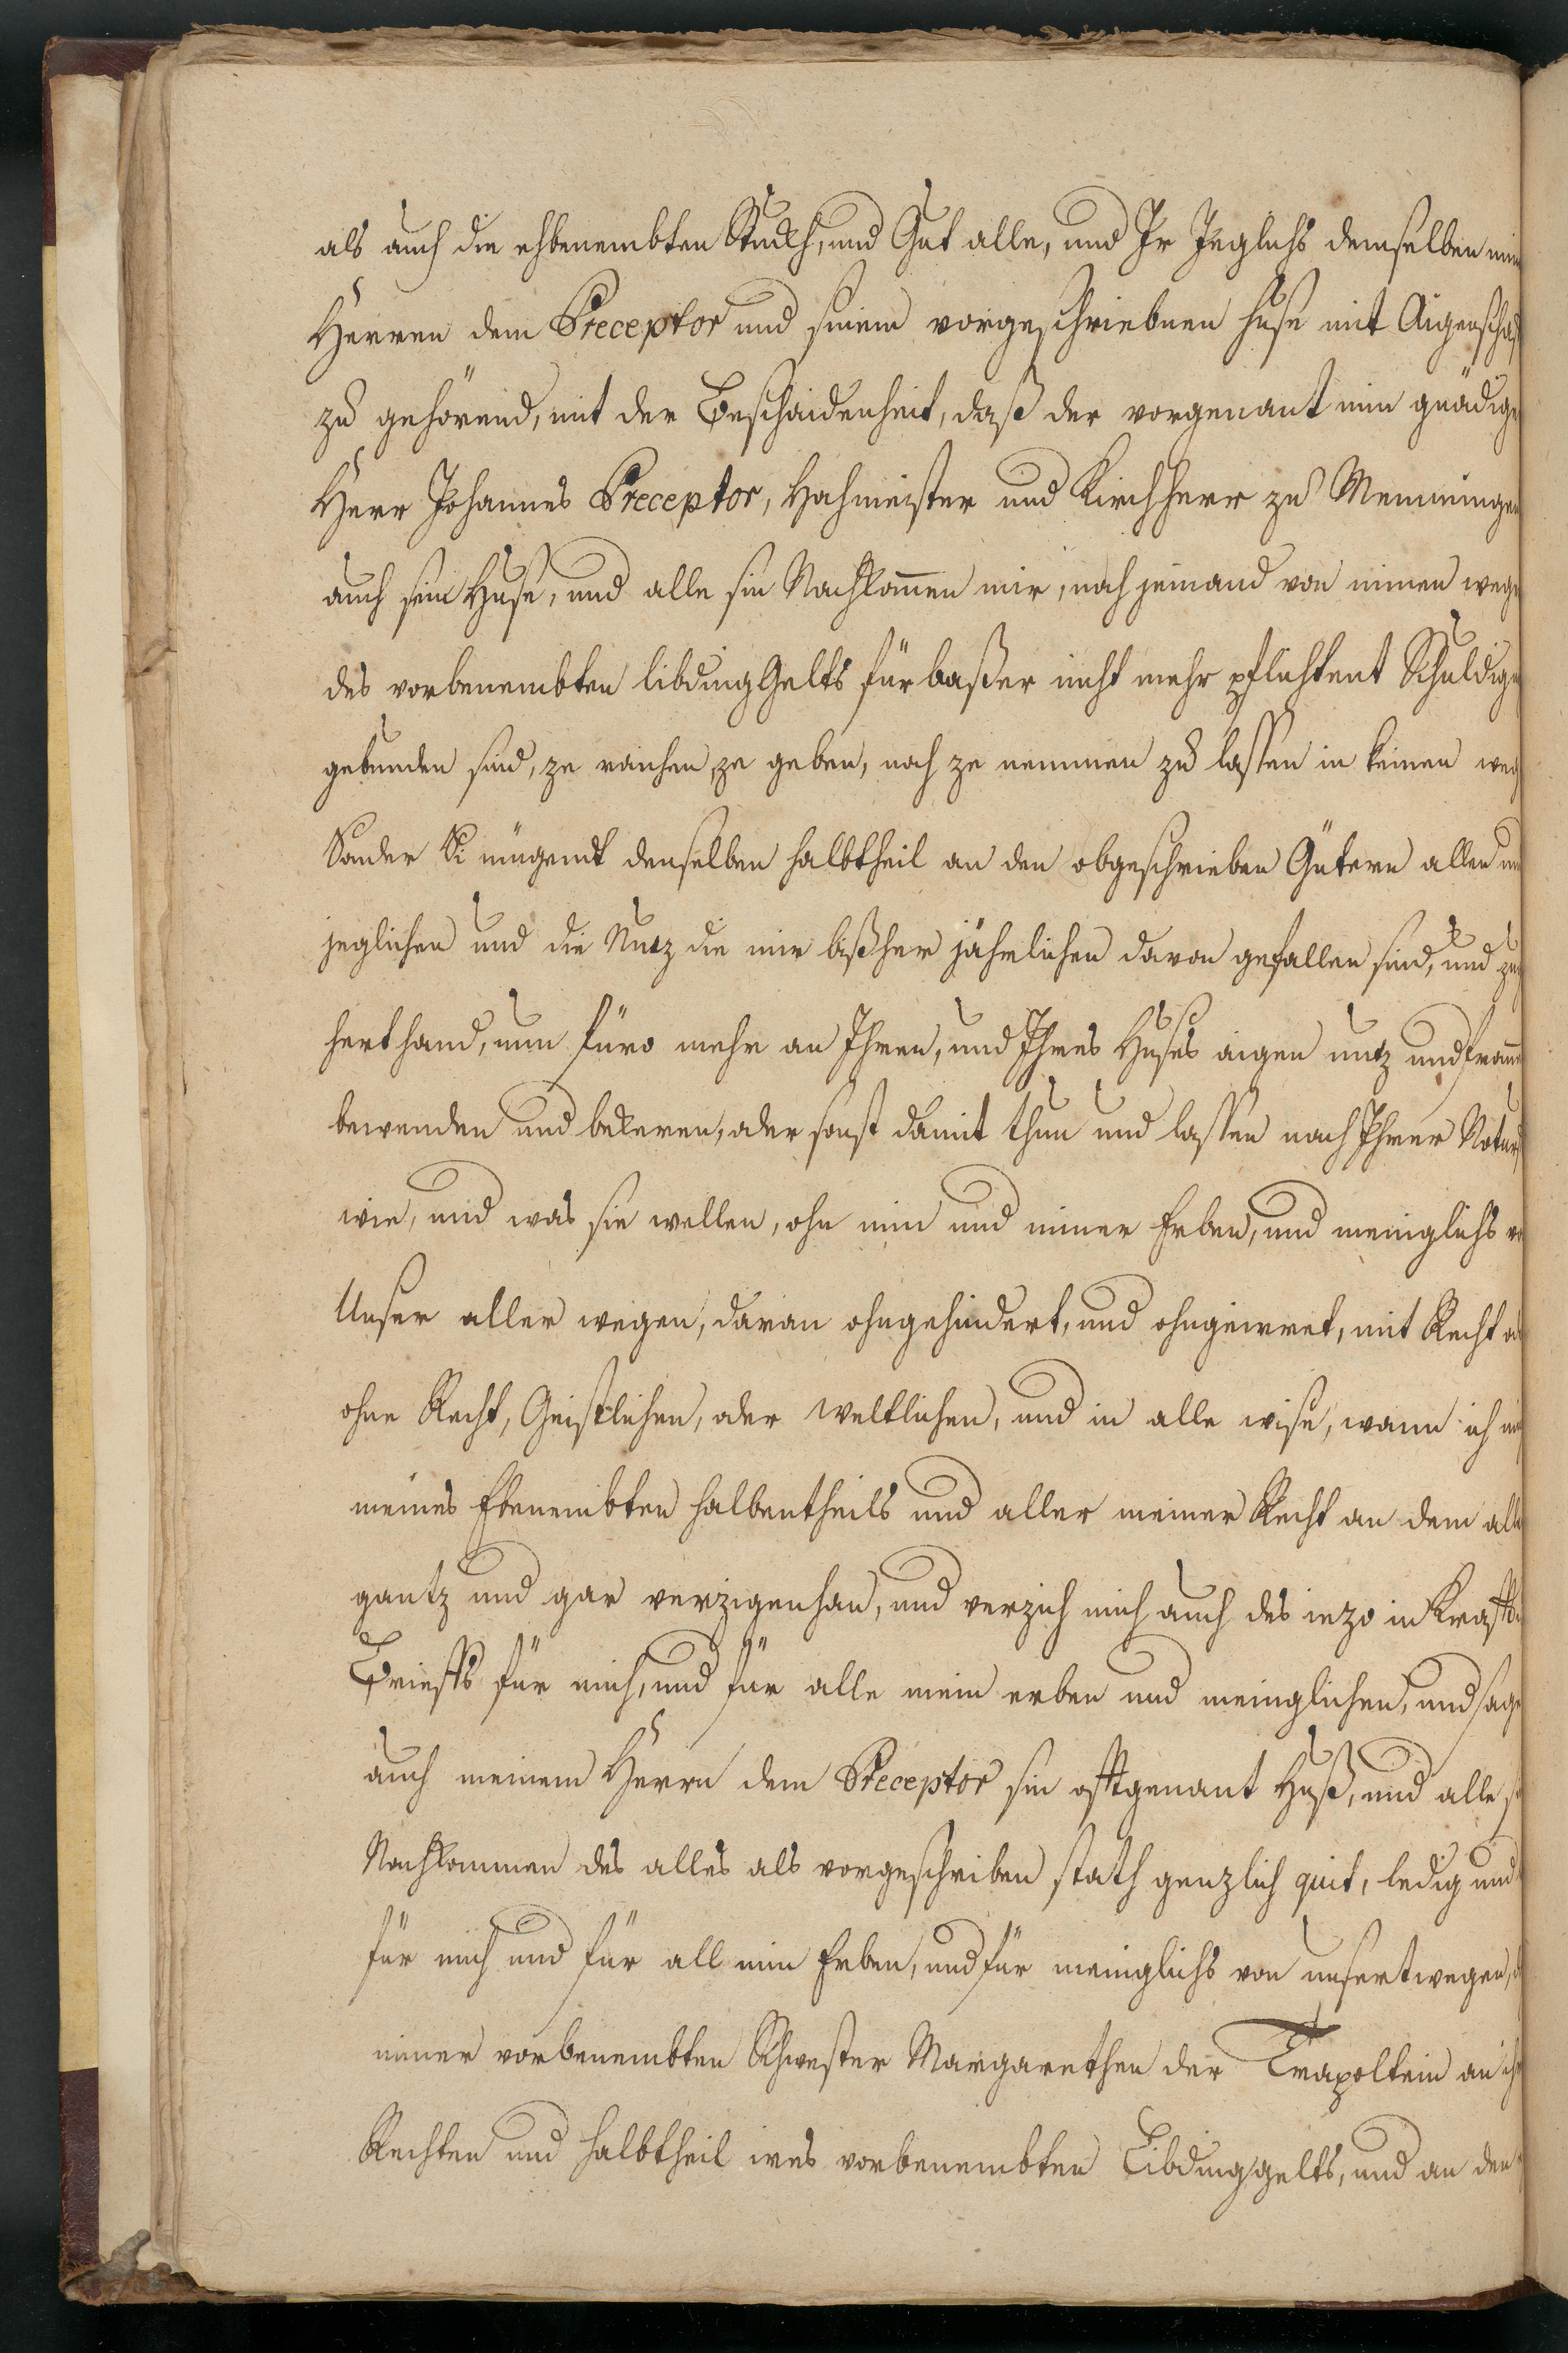 als auch die ehbenembten Stuckh, und Gut alle, und Ir Jeglichs demselben min
Herren dem Preceptor und sinem vorgeschriebnen huse mit Aigenschaf
zu gehörend, mit der Beschaidenheit, daß der vorgenant min gnädige
Herr Johannes Preceptor, Hochmeister und Kirchherr zu Memmingen
auch sein Huse, und alle sin Nachkomen mir, noch jemand von minen wege
des vorbenembten libdingGelts fürbaßer nicht mehr pflichtent Schuldig
gebunden sind, ze raichen, ze geben, noch ze nemmen zu lassen in keinen weg
Sonder Si mügendt denselben halbtheil an den obgeschrieben Gütern allen un
jeglichen und die Nutz die mir bißher jährlichen davon gefallen sind, und zu
hert hand, nun füro mehr an Ihren, und Ihres Huses aigen nutz und from
bewenden und bekeren, oder sonst damit thun und lassen nach Ihrer Notur
wie, und was sie wellen, ohn min und miner Erben, und meniglichs v
Unser aller wegen, daran ohngehindert, und ohngeirret, mit Recht od
ohne Recht, Geistlichen, oder weltlichen, und in alle wise, wann ich mi
meines Ebenembten halbentheils und aller meiner Recht an dem alle
gantz und gar verzigenhan, und verzich mich auch des iezo in Krafft
Brieffs für mich, und für alle mein erben und meinglichen, und sage
auch meinem Herrn dem Preceptor sin offtgenant Huß, und alle s
Nachkommen des alles als vorgeschriben stath genzlich quit, ledig und
für mich und für all min Erben, und für meniglichs von unsertwegen,
miner vorbenembten Schwester Margarethen der Trapoltein an ih
Rechten und halbtheil ires vorbenembten Libdinggelts, und an den